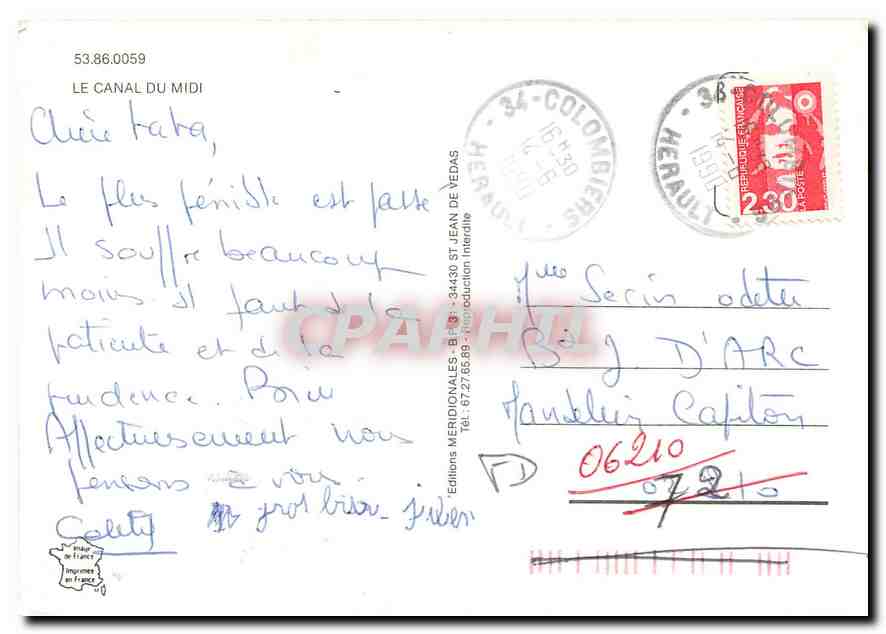 53.86.0059
LE CANAL DU MIDI
Chère tata,
Le plus pénible est passé
Il souffre beaucoup
moins. Il faut de la
patiente et de la
prudence. Bien
Affectueusement nous
pensons à vous.
gros bisou
Image
de France
Imprimée
en France
Editions MERIDIONALES - B.P. 31 - 34430 ST JEAN DE VEDAS
Tél : 67.27.65.89 - Reproduction Interdite
34-COLOMBIERS - HERAULT
16H30
14-6
34 - HERAULT
14-6
1990
REPUBLIQUE FRANÇAISE
2,30
LA POSTE
Mme Serin odette
Bd J. D'ARC
Mandelieu Capitou
06210
7210
CPAPHIL